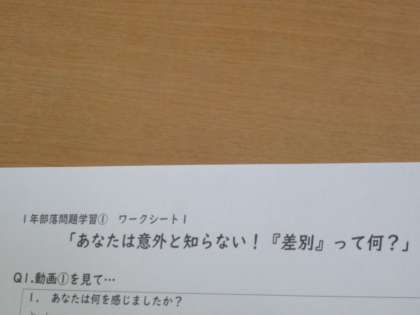 1年部落問題学習① ワークシート1
「あなたは意外と知らない！『差別』って何？」
Q1.動画①を見て…
1. あなたは何を感じましたか？